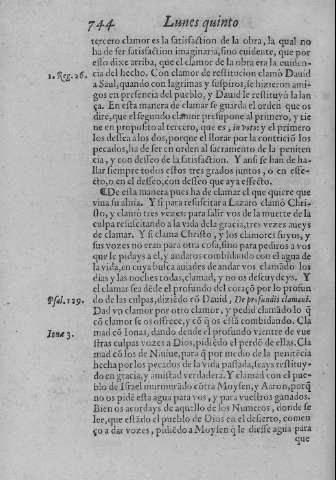 744 Lunes quinto
tercero clamor es la satisfaction de la obra, la qual no
ha de ser satisfaction imaginaria, sino euidente, que por
esso dixe arriba, que el clamor de la obra era la euiden-
1. Reg. 26. cia del hecho. Con clamor de restitucion clamò Dauid
a Saul, quando con lagrimas y suspiros, se hizieron ami-
gos en presencia del pueblo, y Dauid le restituyó la lan
ça. En esta manera de clamar se guarda el orden que os
dire, que el segundo clamor presupone al primero, y tie
ne en proposito al tercero, que es, in voto: y el primero
los dessea a los dos, porque el llorar por la contriciõ los
pecados, ha de ser en orden al sacramento de la peniten
cia, y con desseo de la satisfaction. Y ansi se han de ha-
llar siempre todos estos tres grados juntos, o en effe-
cto, o en el desseo, con desseo que aya effecto.
¶De esta manera pues ha de clamar el que quiere que
viua su alma. Y si para resuscitar a Lazaro clamò Chri-
sto, y clamò tres vezes: para salir vos de la muerte de la
culpa resuscitando a la vida de la gracia, tres vezes aueys
de clamar. Y si clama Christo, y los clamores suyos, y
sus vozes no eran para otra cosa, sino para pediros a vos
que le pidays a el, y andaros combidando con el agua de
la vida, en cuya busca auiades de andar vos clamãdo los
dias y las noches todas, clamad, y no os descuydeys. Y
el clamar sea dẽsde el profundo del coraço por lo profun
Psal. 129. do de las culpas, diziẽdo cõ Dauid, De profundis clamaui.
Dad vn clamor por otro clamor, y pedid clamãdo lo q̃
cõ clamor se os offrece, y cõ q̃ os està combidando. Cla
Ionæ 3. mad cõ Ionas, dando desde el profundo vientre de vue
stras culpas vozes a Dios, pidiẽdo el perdõ de ellas. Cla
mad cõ los de Niniue, para q̃ por medio de la penitẽcia
hecha por los pecados de la vida passada, seays restituy-
do en gracia, y amistad verdadera. Y clamad con el pue-
blo de Israel murmurãdo cõtra Moysen, y Aaron, porq̃
no os pidẽ esta agua para vos, y para vuestros ganados.
Bien os acordays de aquello de los Numeros, donde se
lee, que estãdo el pueblo de Dios en el desierto, comen
ço a dar vozes, pidiẽdo a Moysen q̃ le diesse agua para
que